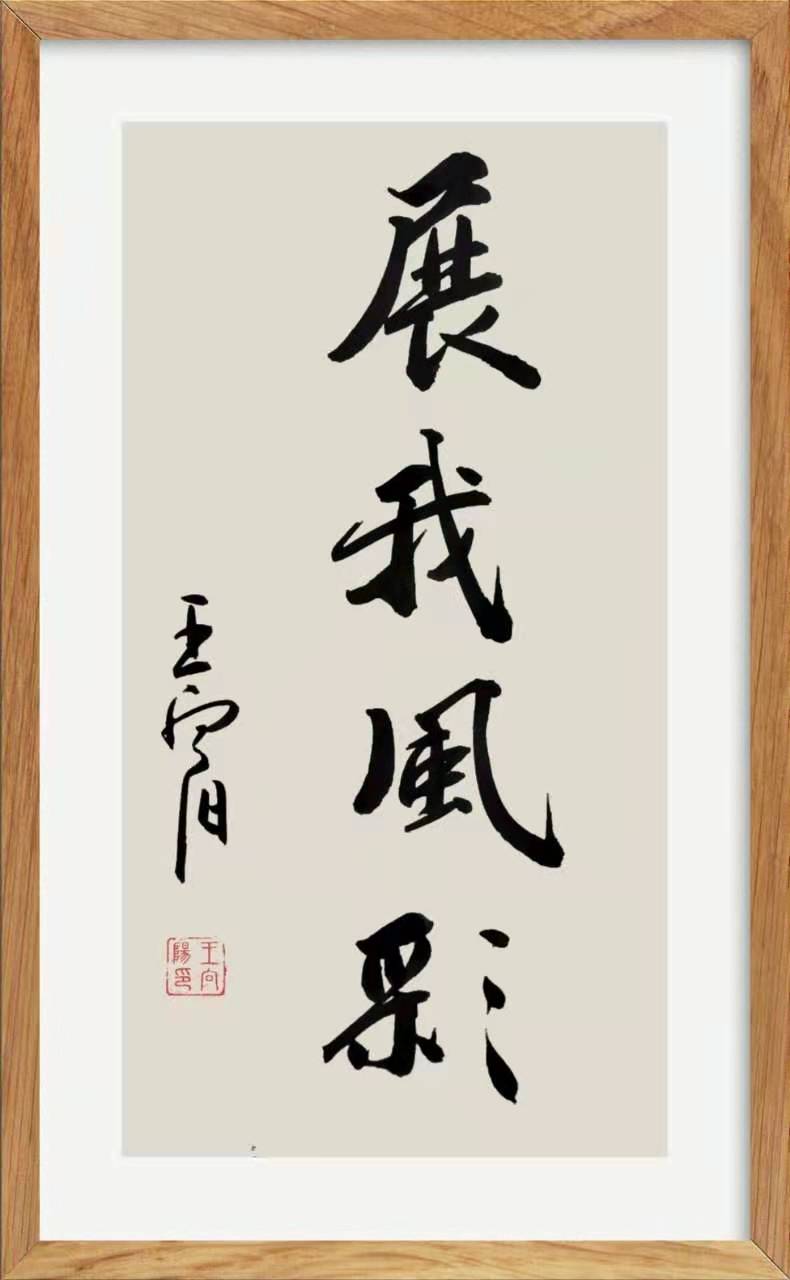 展我風彩
王向阳
王向陽印